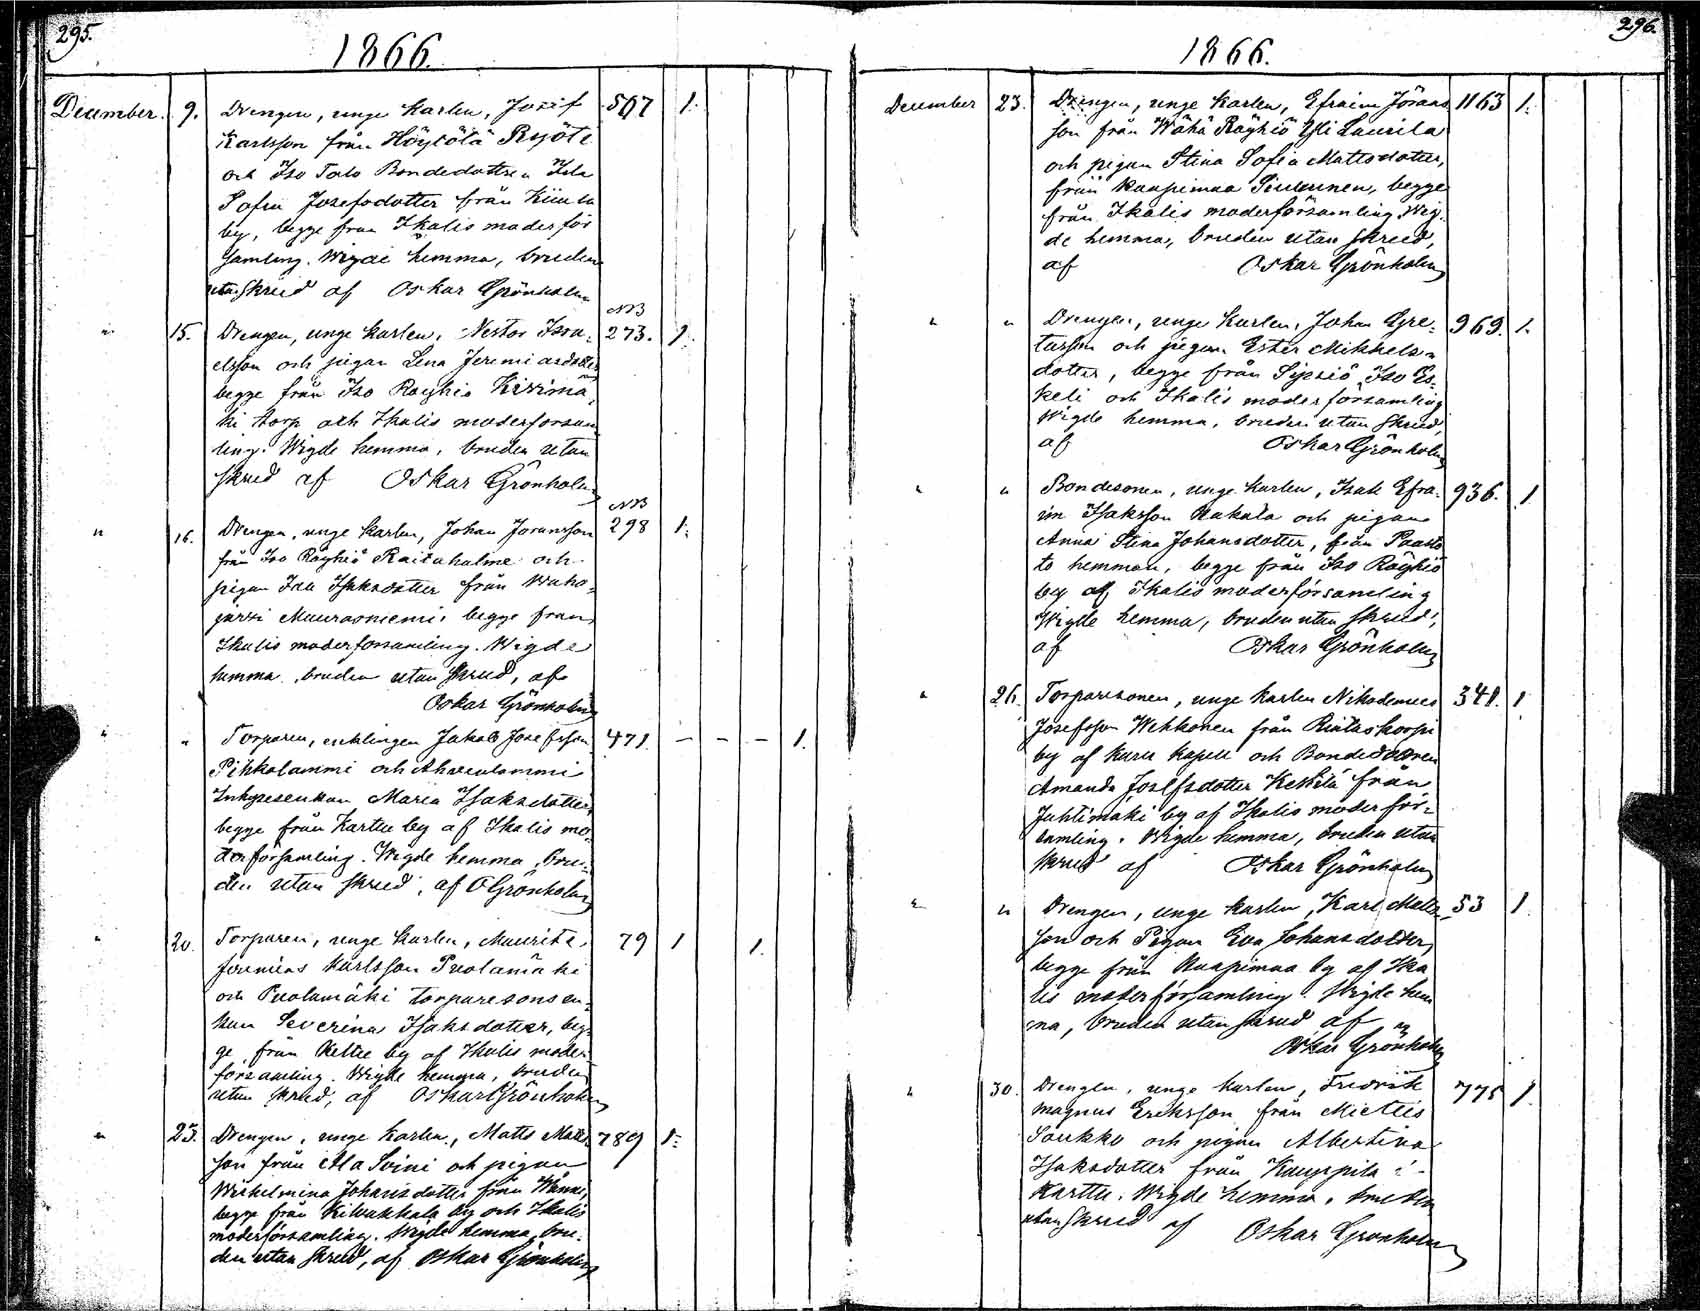 295.
1866.
December. 9. Drengen, unge Karlen, Josef 507 1.
Karlsson från Höytölä Ryöti
och Iso Talo Bondedottren Ida
Sofia Josefsdotter från Kiiala
by, begge från Ikalis moderför
samling. Wigde hemma, bruden
utan skrud af Oskar Grönholm
NB
" 15. Drengen, unge Karlen, Nestor Isra- 273. 1.
elsson och pigan Lena Jeremiasdotter
begge från Iso Röyhiö
ki torp och Ikalis moderförsam
ling. Wigde hemma, bruden utan
skrud af Oskar Grönholm
NB
" 16. Drengen, unge Karlen, Johan Joransson 298 1.
från Iso Röyhiö Raitahalme och
pigan Isaksdotter från Waha-
järvi Muurasniemi, begge från
Ikalis moderförsamling. Wigde
hemma, bruden utan skrud, af
Oskar Grönholm
" " Torparen, enklingen Jakob Josefsson 471. – – – 1.
Pihkolammi och Ahvenlammi
Inhysesenkan Maria Isaksdotter
begge från Karttu by af Ikalis mo-
derförsamling. Wigde hemma, bru-
den utan skrud, af O Grönholm
" 20. Torparen, unge Karlen, Maurits 79 1 1.
Jeremias Karlsson Puolamäki
och Puolamäki torparesonsen-
kan Severina Isaksdotter, beg-
ge från Kelttu by af Ikalis moder-
församling. Wigde hemma, bruden
utan skrud, af Oskar Grönholm
" 23. Drengen, unge Karlen, Matts Matts 789 1.
son från Ala Soini och pigan
Wilhelmina Johansdotter från Wänni,
begge från Kilvakkala by och Ikalis
moderförsamling. Wigde hemma, bru-
den utan skrud, af Oskar Grönholm
296.
1866.
December 23. Drengen, unge Karlen, Efraim Jörans 1163 1.
son från Wähä Röyhiö Yli Laurila
och pigan Stina Sofia Mattsdotter,
från Kaapimaa begge
från Ikalis moderförsamling Wig-
de hemma, bruden utan skrud,
af Oskar Grönholm
" " Drengen, unge Karlen, Johan Gre- 969. 1.
tasson och pigan Ester Mikkels-
dotter, begge från Sipsiö Iso Es-
keli och Ikalis moderförsamling
Wigde hemma, bruden utan skrud,
af Oskar Grönholm
" " Bondesonen, unge Karlen, Isak Efra- 936. 1
im Isaksson Kakala och pigan
Anna Stina Johansdotter, från Paasto
to hemman, begge från Iso Röyhiö
by af Ikalis moderförsamling
Wigde hemma, bruden utan skrud,
af Oskar Grönholm
" 26. Torparesonen, unge Karlen Nikodemus 341. 1
Josefsson Wehkonen från Riitaskorpi
by af Kuru Kapell och Bondedottren
Amanda Josefsdotter Keskitä från
Juhtimäki by af Ikalis moderför-
samling. Wigde hemma, bruden utan
skrud af Oskar Grönholm
" " Drengen, unge Karlen, Karl Matts 53 1
son och Pigan Eva Johansdotter,
begge från Kaapimaa by af Ika
lis moderförsamling. Wigde hem
ma, bruden utan skrud, af
Oskar Grönholm
" 30. Drengen, unge Karlen, Fredrik 775 1
Magnus Eriksson från Miettis
Soukko och pigan Albertina
Isaksdotter från Kauppila i
Karttu. Wigde hemma, bruden
utan skrud af Oskar Grönholm